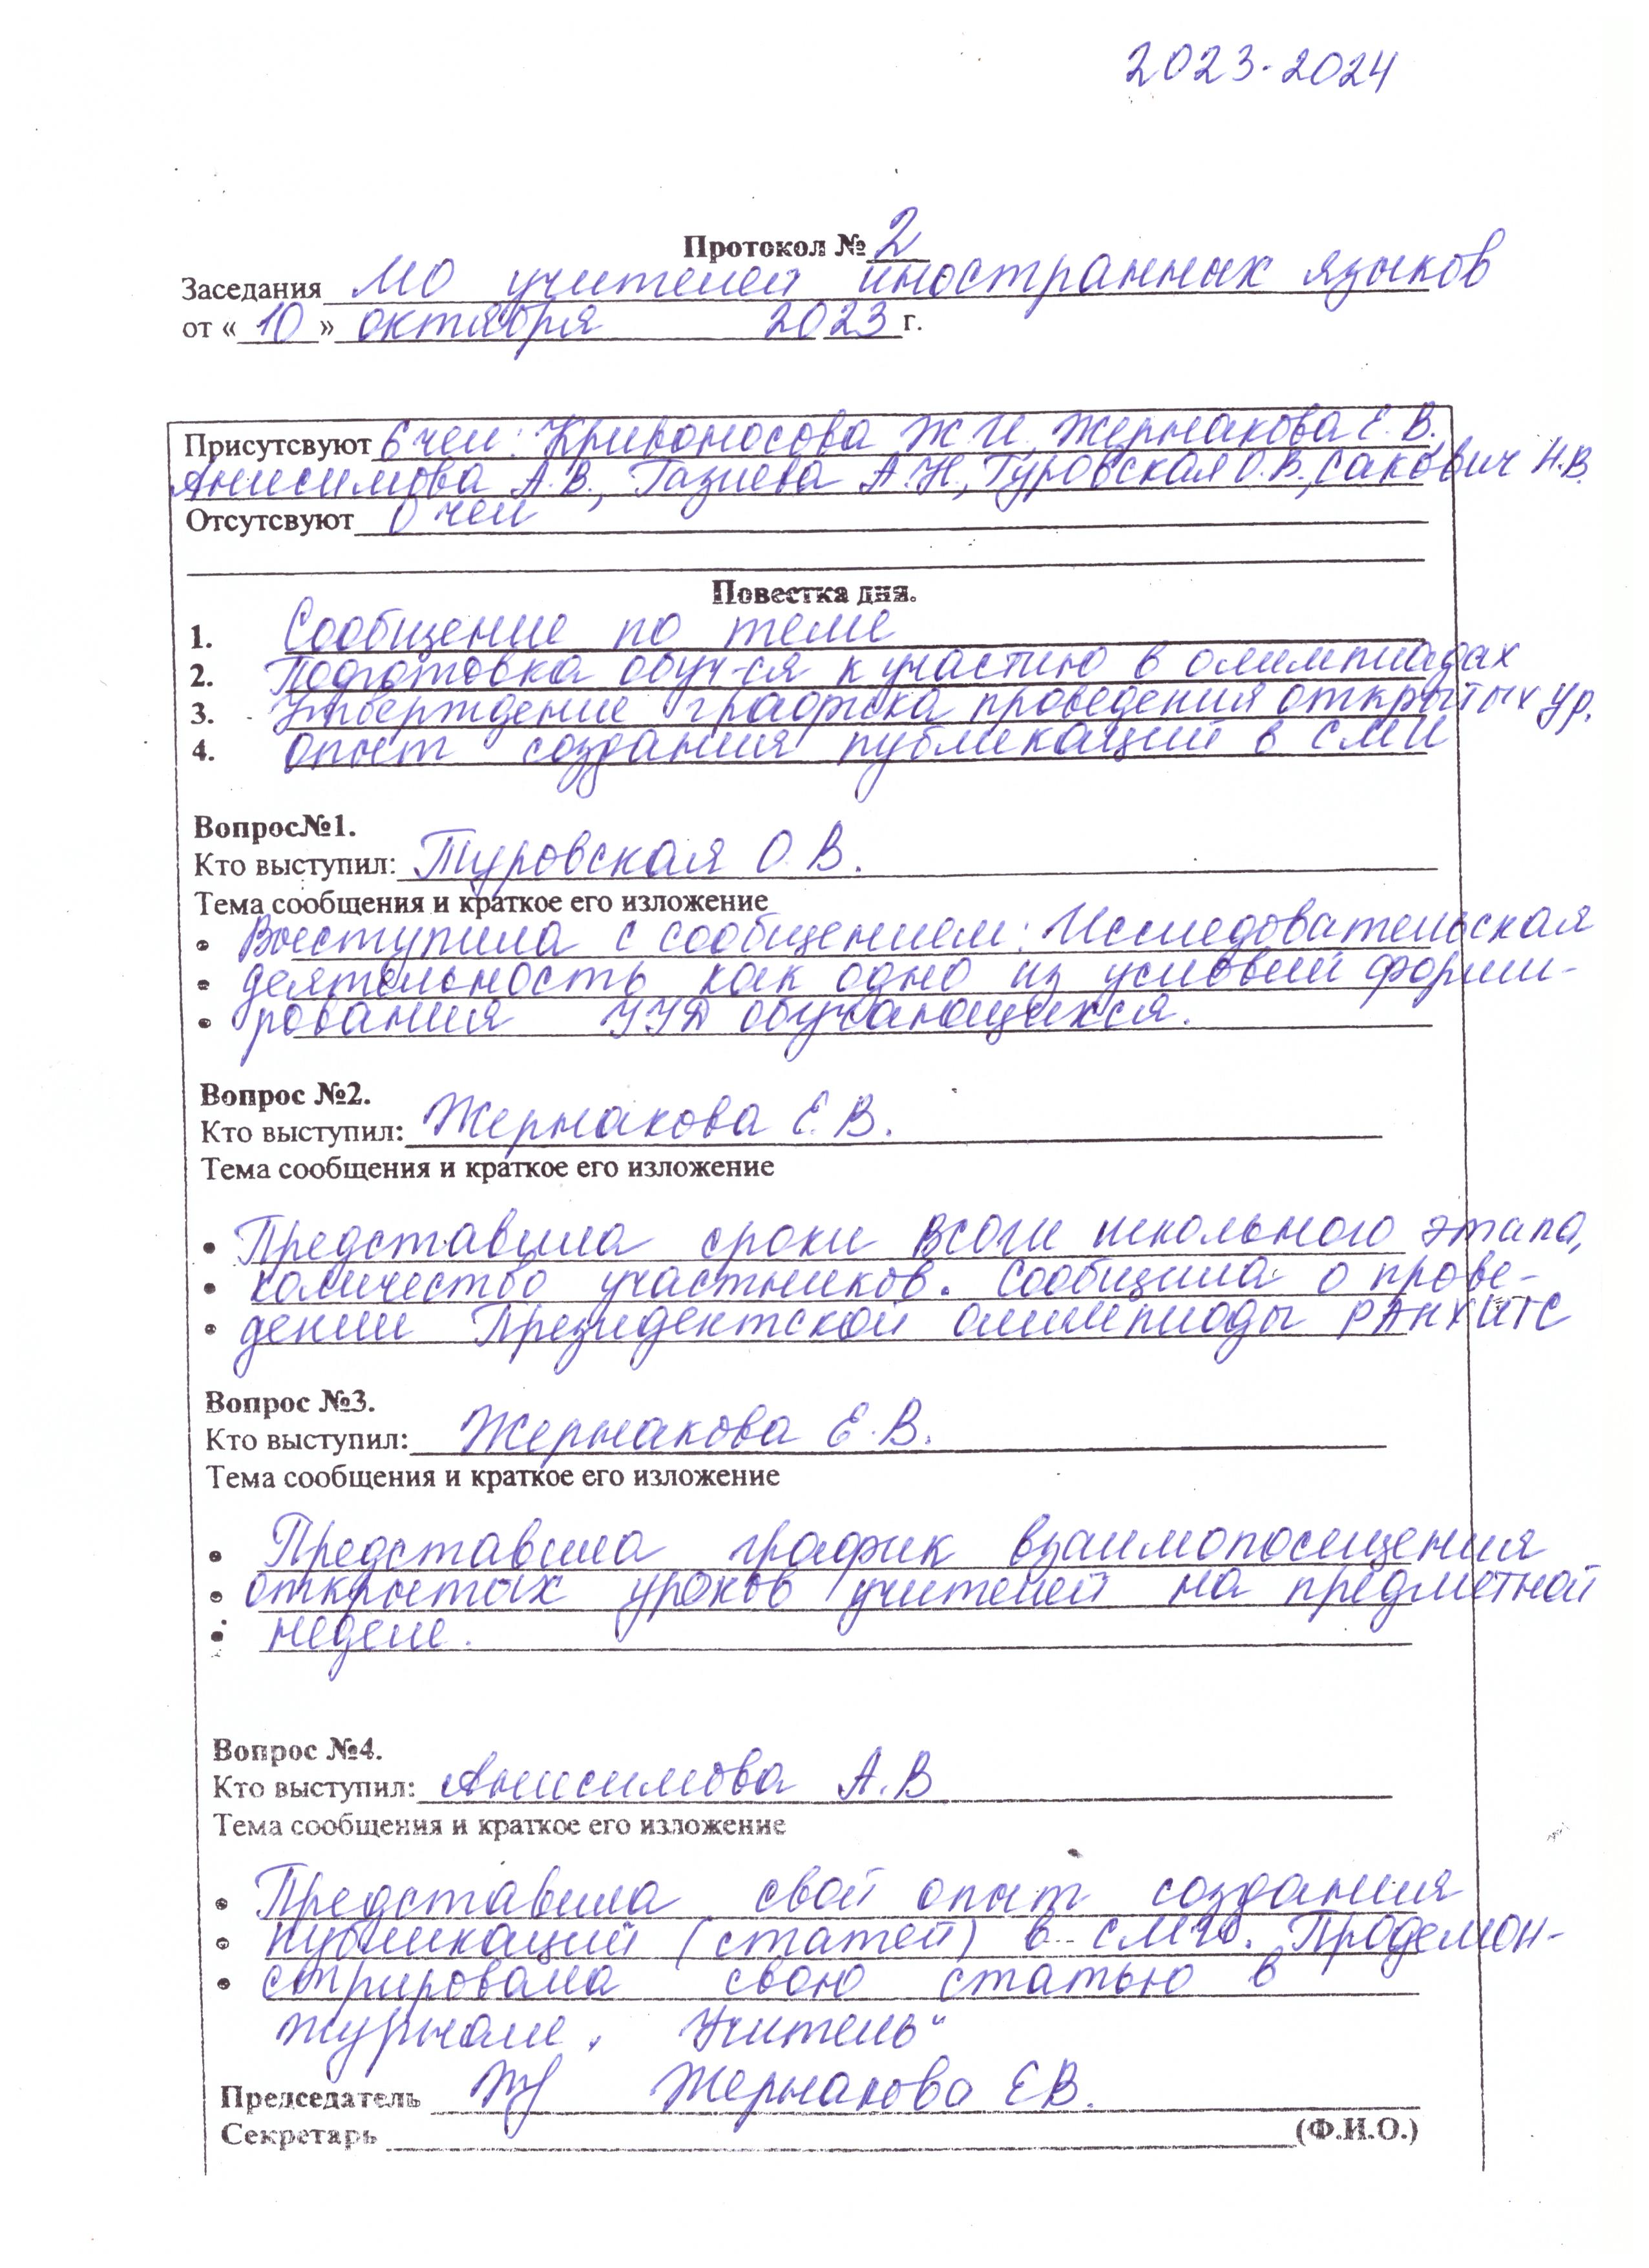 2023-2024
Протокол № 2
Заседания МО учителей иностранных языков
от «10» октября 2023 г.
Присутсвуют 6 чел: Кривоносова Ж И, Жернакова Е. В.,
Анисимова А. В., Газиева А. Н., Туровская О. В., Сакович Н.В.
Отсутсвуют 0 чел
Повестка дня.
1. Сообщение по теме
2. Подготовка обуч-ся к участию в олимпиадах
3. Утверждение графика проведения открытых ур.
4. Опыт создания публикаций в СМИ
Вопрос№1.
Кто выступил: Туровская О. В.
Тема сообщения и краткое его изложение
• Выступила с сообщением: Исследовательская
• деятельность как одно из условий форми-
• рования УУД обучающихся.
Вопрос №2.
Кто выступил: Жернакова Е. В.
Тема сообщения и краткое его изложение
• Представила сроки ВСОШ школьного этапа,
• количество участников. Сообщила о прове-
• дении Президентской олимпиады РАНХИГС
Вопрос №3.
Кто выступил: Жернакова Е. В.
Тема сообщения и краткое его изложение
• Представила график взаимопосещения
• открытых уроков учителей на предметной
• неделе.
Вопрос №4.
Кто выступил: Анисимова А. В
Тема сообщения и краткое его изложение
• Представила свой опыт создания
• публикаций (статей) в СМИ. Продемон-
• стрировала свою статью в
журнале „Учитель“
Председатель Жернакова ЕВ.
Секретарь (Ф.И.О.)